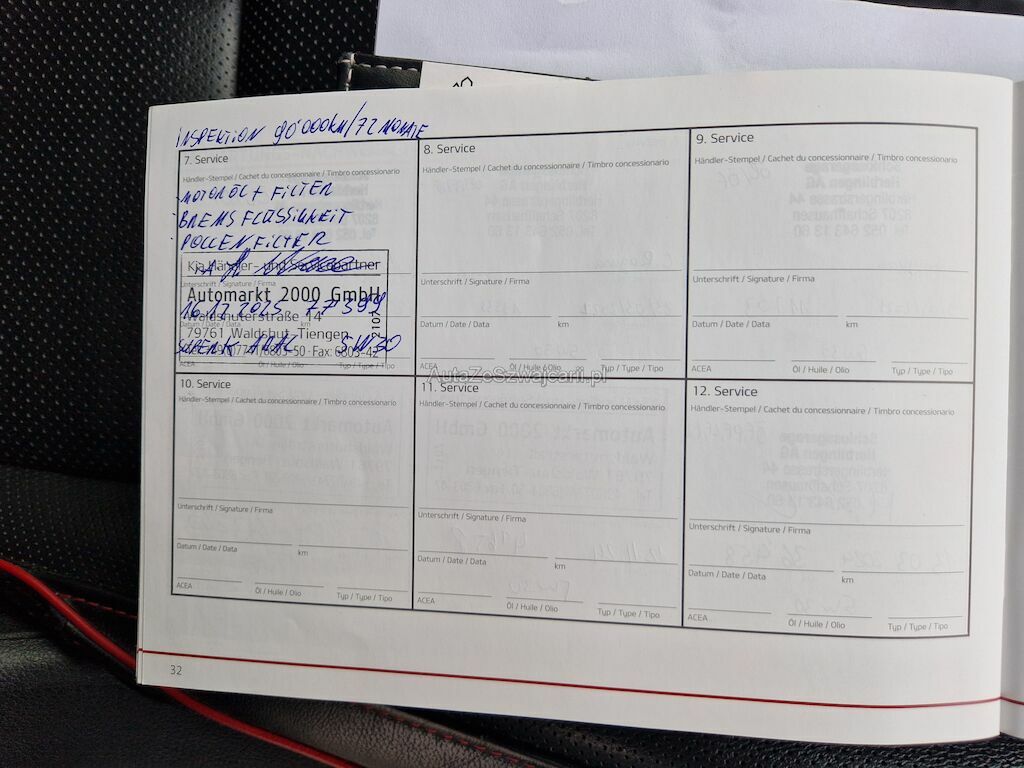 INSPEKTION 90'000KM/72 MONATE
7. Service
Händler-Stempel / Cachet du concessionnaire / Timbro concessionario
-MOTORÖL + FILTER
-BREMSFLÜSSIGKEIT
-POLLENFILTER
Kia Händler- und Servicepartner
Unterschrift / Signature / Firma
Automarkt 2000 GmbH
16.12.2025 77599
Waldshuterstraße 14
Datum / Date / Data km
79761 Waldshut-Tiengen
5W30
6803-50 · Fax: 6803-42
2107
ACEA Öl / Huile / Olio Typ / Type / Tipo
8. Service
Händler-Stempel / Cachet du concessionnaire / Timbro concessionario
Unterschrift / Signature / Firma
Datum / Date / Data km
ACEA Öl / Huile / Olio Typ / Type / Tipo
9. Service
Händler-Stempel / Cachet du concessionnaire / Timbro concessionario
Unterschrift / Signature / Firma
Datum / Date / Data km
ACEA Öl / Huile / Olio Typ / Type / Tipo
AutaZeSzwajcarii.pl
10. Service
Händler-Stempel / Cachet du concessionnaire / Timbro concessionario
Unterschrift / Signature / Firma
Datum / Date / Data km
ACEA Öl / Huile / Olio Typ / Type / Tipo
11. Service
Händler-Stempel / Cachet du concessionnaire / Timbro concessionario
Unterschrift / Signature / Firma
Datum / Date / Data km
ACEA Öl / Huile / Olio Typ / Type / Tipo
12. Service
Händler-Stempel / Cachet du concessionnaire / Timbro concessionario
Unterschrift / Signature / Firma
Datum / Date / Data km
ACEA Öl / Huile / Olio Typ / Type / Tipo
32